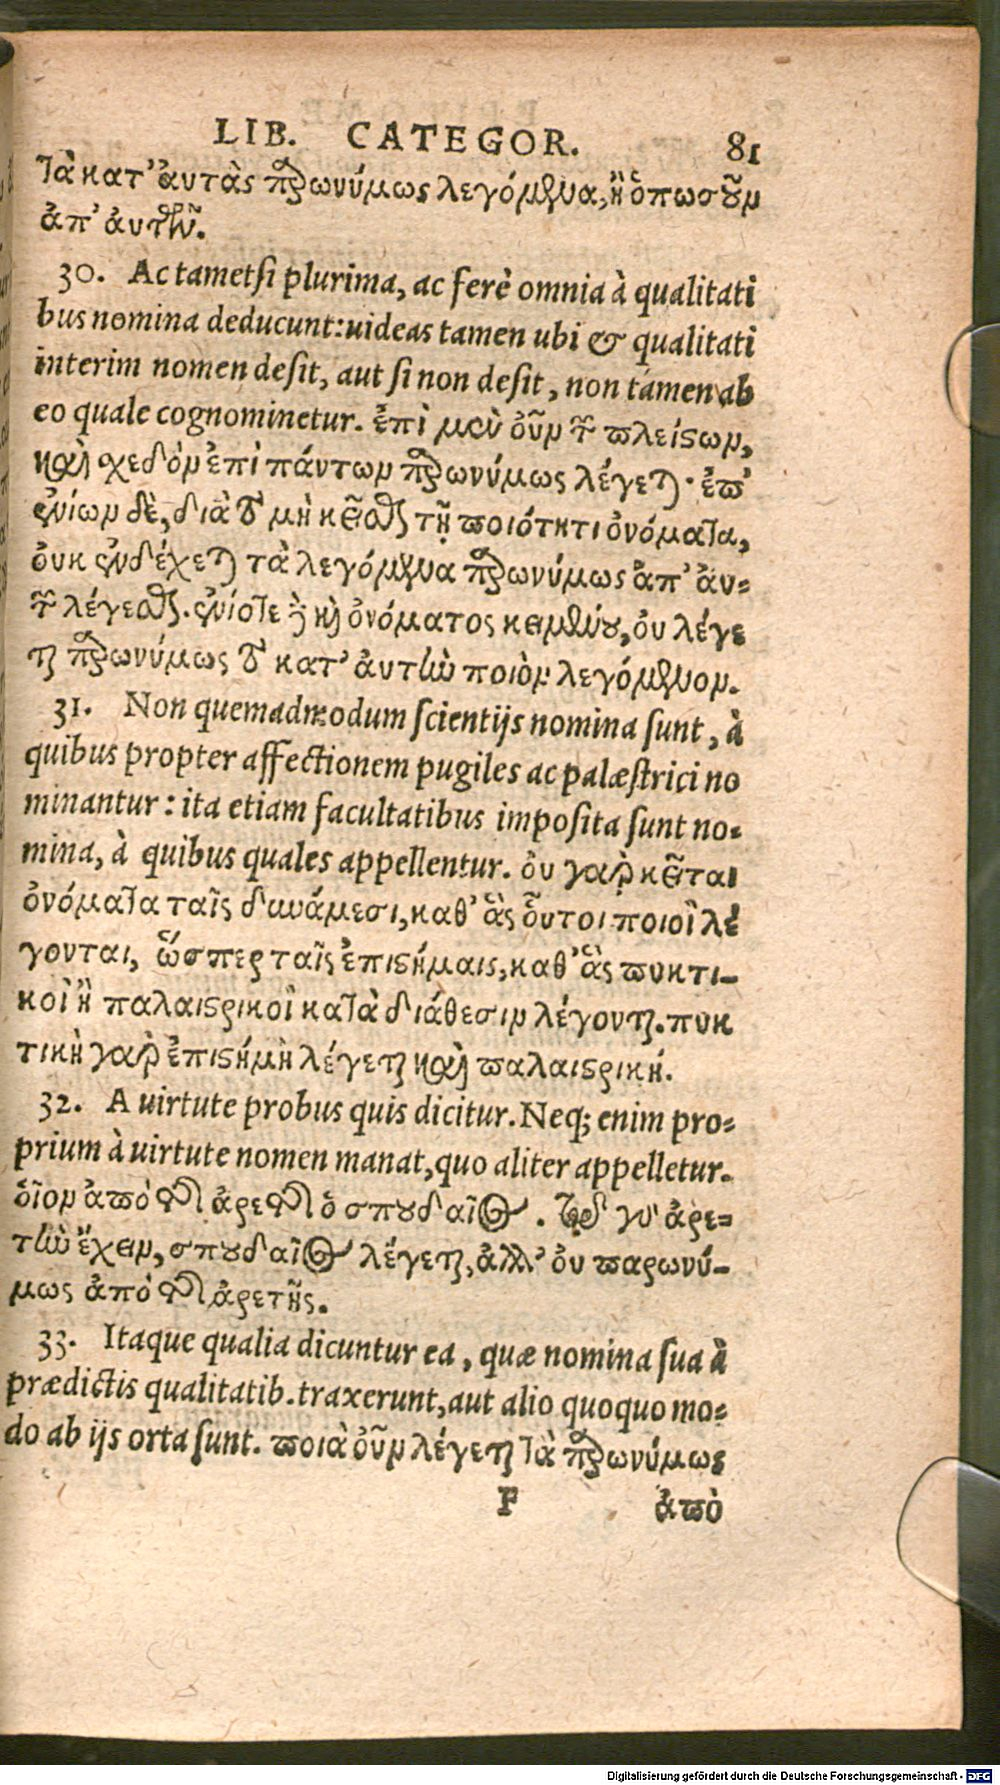 LIB. CATEGOR. 81
τὰ κατ' ἀυτὰς παρωνύμως λεγόμενα, ἢ ὁπωσοῦν
ἀπ' ἀυτῶν.
30. Ac tametsi plurima, ac ferè omnia à qualitati
bus nomina deducunt: uideas tamen ubi & qualitati
interim nomen desit, aut si non desit, non tamen ab
eo quale cognominetur. ἐπὶ μὲν οὖν τῶν πλείστων,
καὶ σχεδὸν ἐπὶ πάντων παρωνύμως λέγεται· ἐπ'
ἐνίων δὲ, διὰ τὸ μὴ κεῖσθαι τῇ ποιότητι ὀνόματα,
ὀυκ ἐνδέχεται τὰ λεγόμενα παρωνύμως ἀπ' ἀυ-
τῶν λέγεσθαι. ἐνίοτε δὲ καὶ ὀνόματος κειμένου, ὀυ λέγε
ται παρωνύμως τὸ κατ' ἀυτὴν ποιὸν λεγόμενον.
31. Non quemadmodum scientijs nomina sunt, à
quibus propter affectionem pugiles ac palæstrici no
minantur: ita etiam facultatibus imposita sunt no-
mina, à quibus quales appellentur. ὀυ γὰρ κεῖται
ὀνόματα ταῖς δυνάμεσι, καθ' ἃς οὗτοι ποιοὶ λέ
γονται, ὥσπερ ταῖς ἐπιστήμαις, καθ' ἃς πυκτι-
κοὶ ἢ παλαιστρικοὶ κατὰ διάθεσιν λέγονται. πυκ
τικὴ γὰρ ἐπιστήμη λέγεται καὶ παλαιστρική.
32. A uirtute probus quis dicitur. Neq; enim pro-
prium à uirtute nomen manat, quo aliter appelletur.
ὁῖον ἀπὸ τῆς ἀρετῆς ὁ σπουδαῖος. τῷ γὰρ ἀρε-
τὴν ἔχειν, σπουδαῖος λέγεται, ἀλλ' ὀυ παρωνύ-
μως ἀπὸ τῆς ἀρετῆς.
33. Itaque qualia dicuntur ea, quæ nomina sua à
prædictis qualitatib. traxerunt, aut alio quoquo mo-
do ab ijs orta sunt. ποιὰ οὖν λέγεται τὰ παρωνύμως
F ἀπὸ
Digitalisierung gefördert durch die Deutsche Forschungsgemeinschaft - DFG